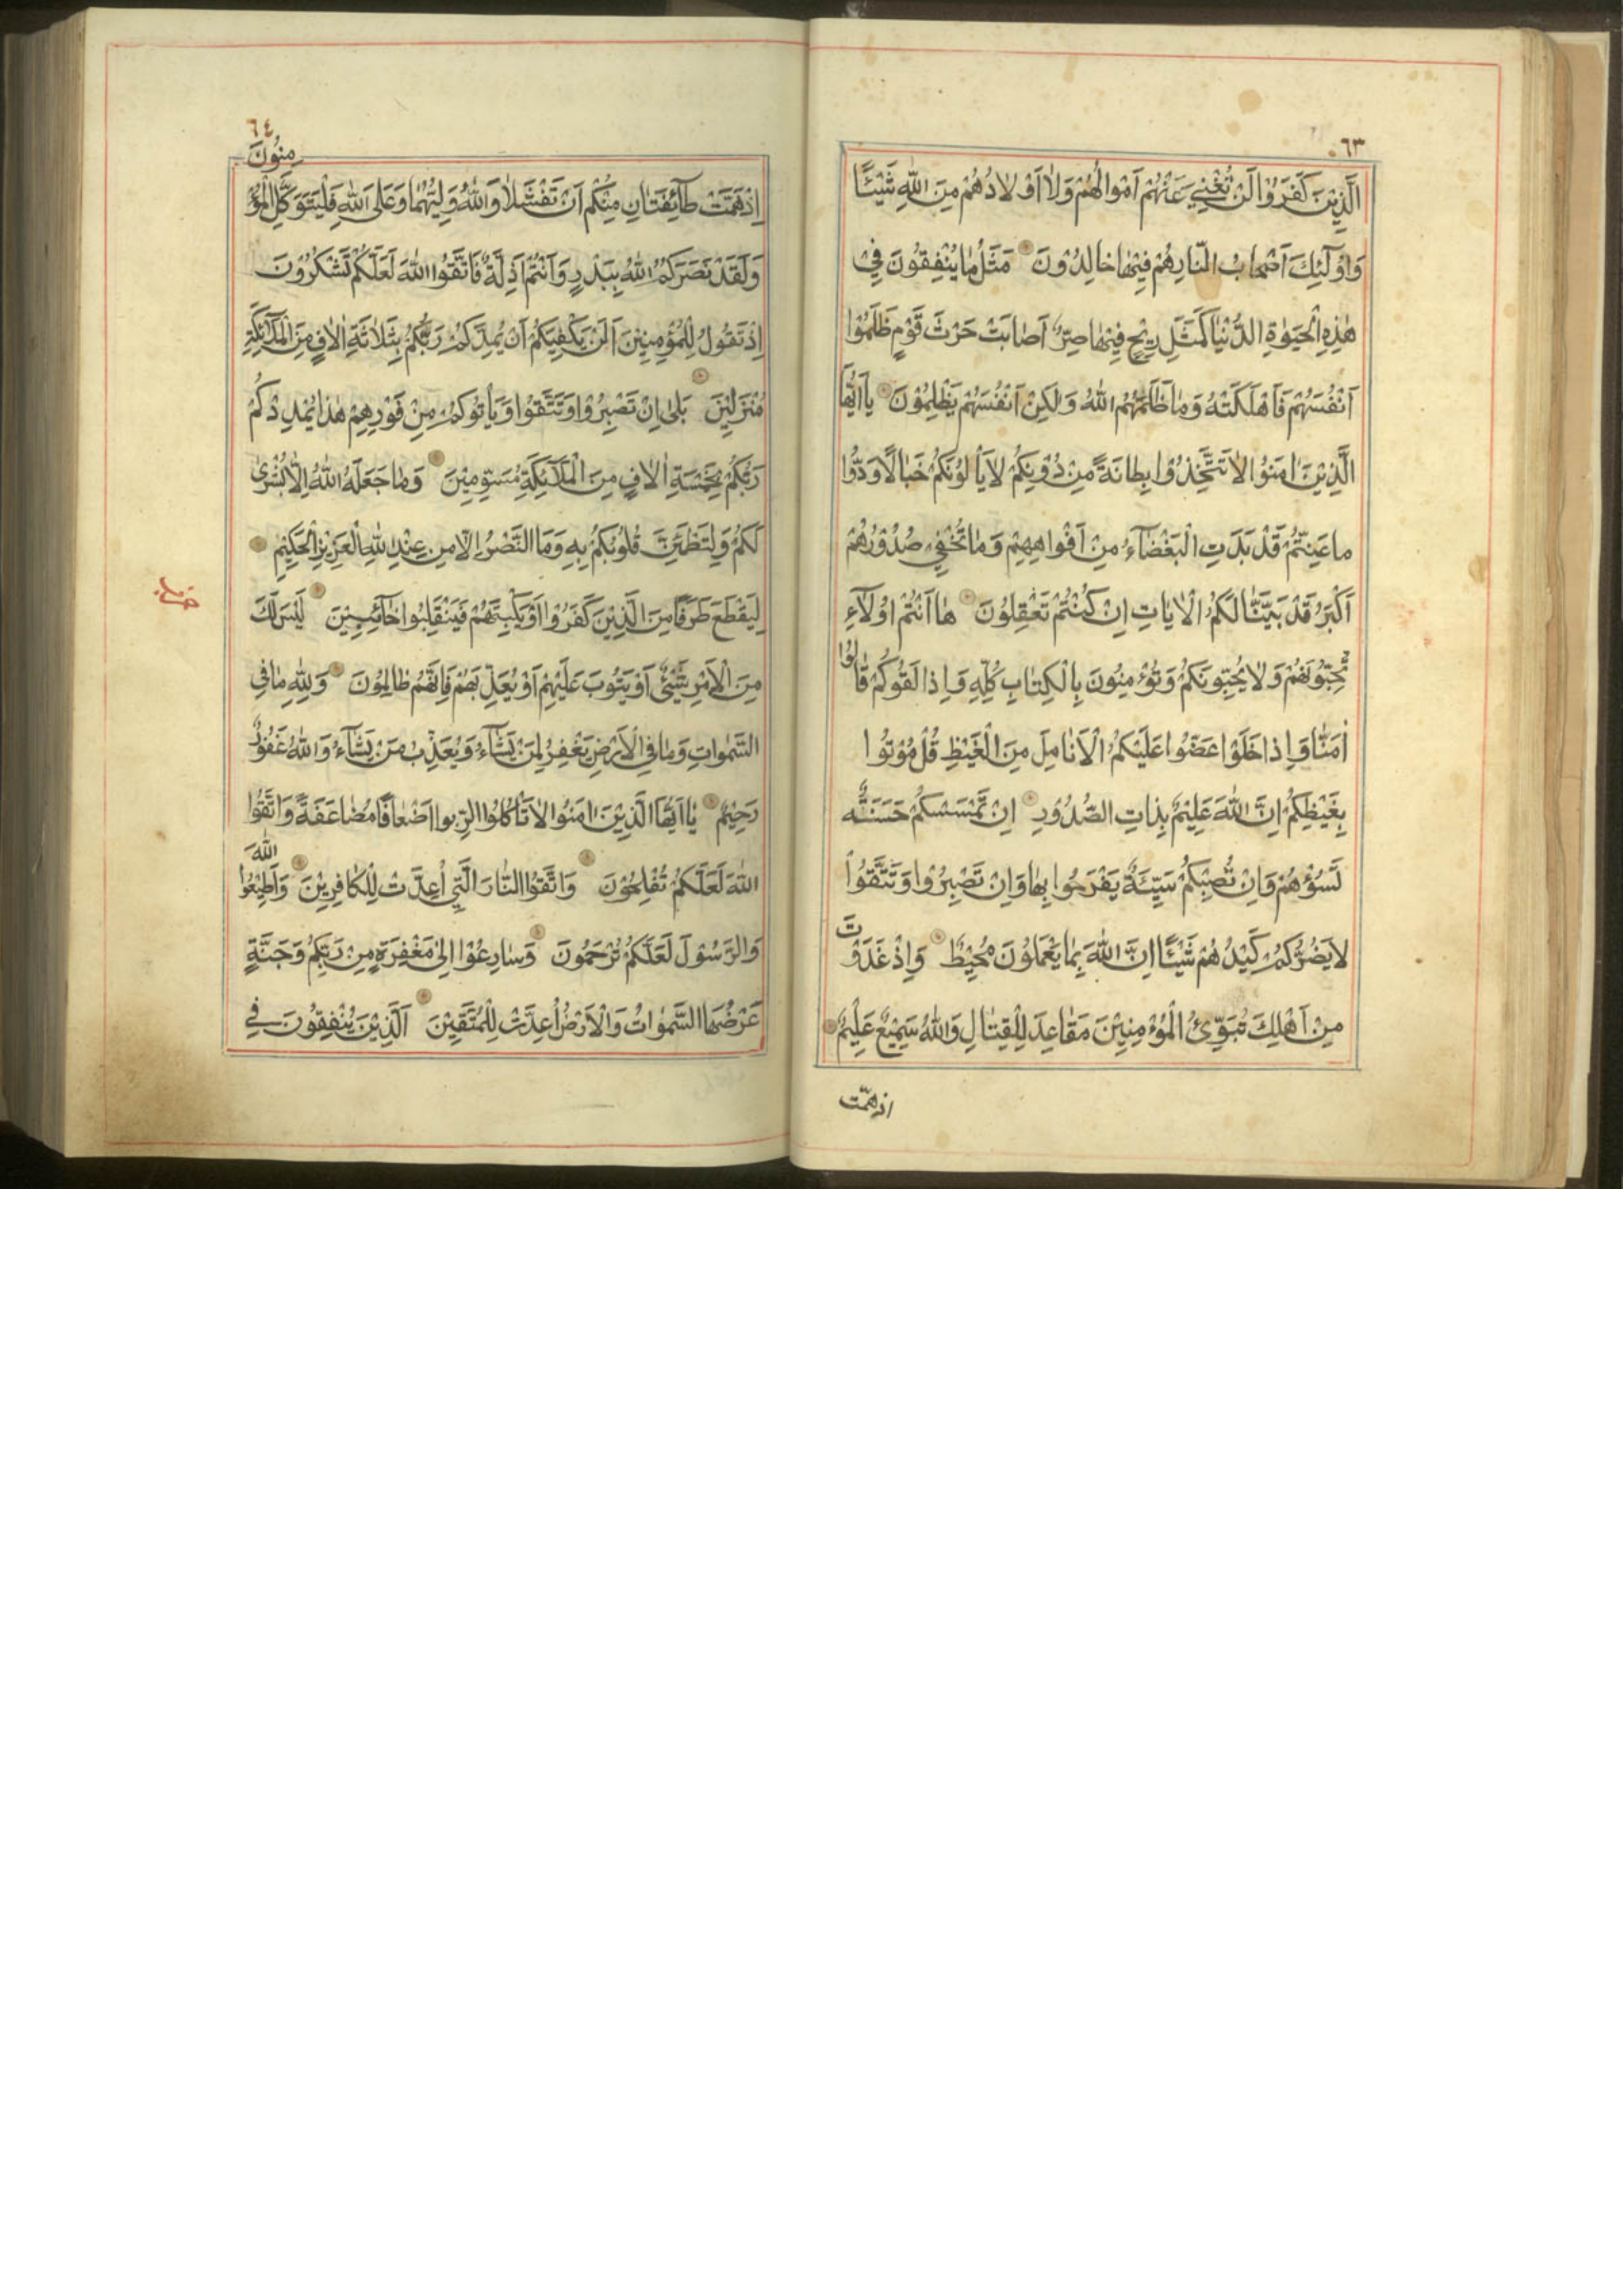 ٦٣
اَلَّذِيْنَ كَفَرَوُا لَنْ تُغْنِيَ عَنْهُمْ اَمْوالُهُمْ وَلٰا اَوْلٰادُهُمْ مِنَ اللّٰهِ شَيْئًا
وَاوُلٰٓئِكَ اَصْحٰابُ النّارِهُمْ فِيْهٰا خالِدُوْنَ مَثَلُ مٰا يُنْفِقُونَ فِيْ
هٰذِهِ الْحَيٰوةِ الدُّنْيٰا كَمَثَلِ رِيْحٍ فِيْهٰا صِرٌّ اَصٰابَتْ حَرْثَ قَوْمٍ ظَلَمُوْا
اَنْفُسَهُمْ فَاَهْلَكَتْهُ وَمٰا ظَلَمَهُمُ اللّٰهُ وَلٰكِنْ اَنْفُسَهُمْ يَظْلِمُوْنَ يٰا اَيُّهَا
الَّذِيْنَ اٰمَنوُا لٰا تَتَّخِذُوْا بِطٰانَةً مِنْ دُوْنِكُمْ لٰا يَأْلوُنَكُمْ خَبٰالًا وَدّوُا
ماعَنِتُّمْ قَدْ بَدَتِ الْبَغْضٰٓاءُ مِنْ اَفْواهِهِمْ وَمٰا تُخْفِيْ صُدُوْرُهُمْ
اَكْبَرُ قَدْ بَيَّنّٰا لَكُمُ الْاٰيٰاتِ اِنْ كُنْتُمْ تَعْقِلُونَ هٰا اَنْتُمْ اوُلٰٓاءِ
تُحِبّوُنَهُمْ وَلٰا يُحِبّوُنَكُمْ وَتُؤْمِنوُنَ بِالْكِتٰابِ كُلِّهِ وَاِذا لَقُوكُمْ قٰالوُا
اٰمَنّٰا وَاِذا خَلَوْا عَضّوُا عَلَيْكُمُ الْاَنٰامِلَ مِنَ الْغَيْظِ قُلْ مُوْتوُا
بِغَيْظِكُمْ اِنَّ اللّٰهَ عَلِيْمٌ بِذاتِ الصُّدُوْرِ اِنْ تَمْسَسْكُمْ حَسَنَةٌ
تَسُؤْهُمْ وَاِنْ تُصِبْكُمْ سَيِّئَةٌ يَفْرَحوُا بِهٰا وَاِنْ تَصْبِرُوْا وَتَتَّقوُا
لٰا يَضُرُّكُمْ كَيْدُهُمْ شَيْئًا اِنَّ اللّٰهَ بِمٰا يَعْمَلوُنَ مُحِيْطٌ وَاِذْ غَدَوْتَ
مِنْ اَهْلِكَ تُبَوِّئُ الْمُؤْمِنِيْنَ مَقٰاعِدَ لِلْقِتٰالِ وَاللّٰهُ سَمِيْعٌ عَلِيْمٌ
اذهمّت
٦٤
اِذْهَمَّتْ طٰٓائِفَتٰانِ مِنْكُمْ اَنْ تَفْشَلٰا وَاللّٰهُ وَلِيُّهُمٰا وَعَلَى اللّٰهِ فَلْيَتَوَكَّلِ الْمُؤْمِنوُنَ
وَلَقَدْ نَصَرَكُمُ اللّٰهُ بِبَدْرٍ وَاَنْتُمْ اَذِلَّةٌ فَاتَّقوُا اللّٰهَ لَعَلَّكُمْ تَشْكُرُوْنَ
اِذْتَقوُلُ لِلْمُؤْمِنِيْنَ اَلَنْ يَكْفِيَكُمْ اَنْ يُمِدَّكُمْ رَبُّكُمْ بِثَلٰاثَةِ اٰلٰافٍ مِنَ الْمَلٰٓائِكَةِ
مُنْزَلِيْنَ بَلىٰ اِنْ تَصْبِرُوْا وَتَتَّقوُا وَيَأْتوُكُمْ مِنْ فَوْرِهِمْ هٰذا يُمْدِدْكُمْ
رَبُّكُمْ بِخَمْسَةِ اٰلٰافٍ مِنَ الْمَلٰٓائِكَةِ مُسَوِّمِيْنَ وَمٰا جَعَلَهُ اللّٰهُ اِلّٰا بُشْرىٰ
لَكُمْ وَلِتَطْمَئِنَّ قُلوُبُكُمْ بِهِ وَمَا النَّصْرُ اِلّٰا مِنْ عِنْدِ اللّٰهِ الْعَزِيْزِ الْحَكِيْمِ
لِيَقْطَعَ طَرَفًا مِنَ الَّذِيْنَ كَفَرُوْا اَوْ يَكْبِتَهُمْ فَيَنْقَلِبوُا خٰٓائِبِيْنَ لَيْسَ لَكَ
مِنَ الْاَمْرِ شَيْئٌ اَوْ يَتوُبَ عَلَيْهِمْ اَوْ يُعَذِّبَهُمْ فَاِنَّهُمْ ظٰالِموُنَ وَلِلّٰهِ مٰا فِي
السَّمٰوٰاتِ وَمٰا فِي الْاَرْضِ يَغْفِرُ لِمَنْ يَشٰٓاءُ وَيُعَذِّبُ مَنْ يَشٰٓاءُ وَاللّٰهُ غَفوُرٌ
رَحِيْمٌ يٰا اَيُّهَا الَّذِيْنَ اٰمَنوُا لٰا تَأْكُلوُا الرِّبوا اَضْعٰافًا مُضٰاعَفَةً وَاتَّقوُا
اللّٰهَ لَعَلَّكُمْ تُفْلِحوُنَ وَاتَّقوُا النّٰارَ الَّتِيْ اُعِدَّتْ لِلْكٰافِرِيْنَ وَاَطِيْعوُا اللّٰهَ
وَالرَّسوُلَ لَعَلَّكُمْ تُرْحَموُنَ وَسٰارِعوُْا اِلىٰ مَغْفِرَةٍ مِنْ رَبِّكُمْ وَجَنَّةٍ
عَرْضُهَا السَّمٰوٰاتُ وَالْاَرْضُ اُعِدَّتْ لِلْمُتَّقِيْنَ اَلَّذِيْنَ يُنْفِقوُنَ فِي